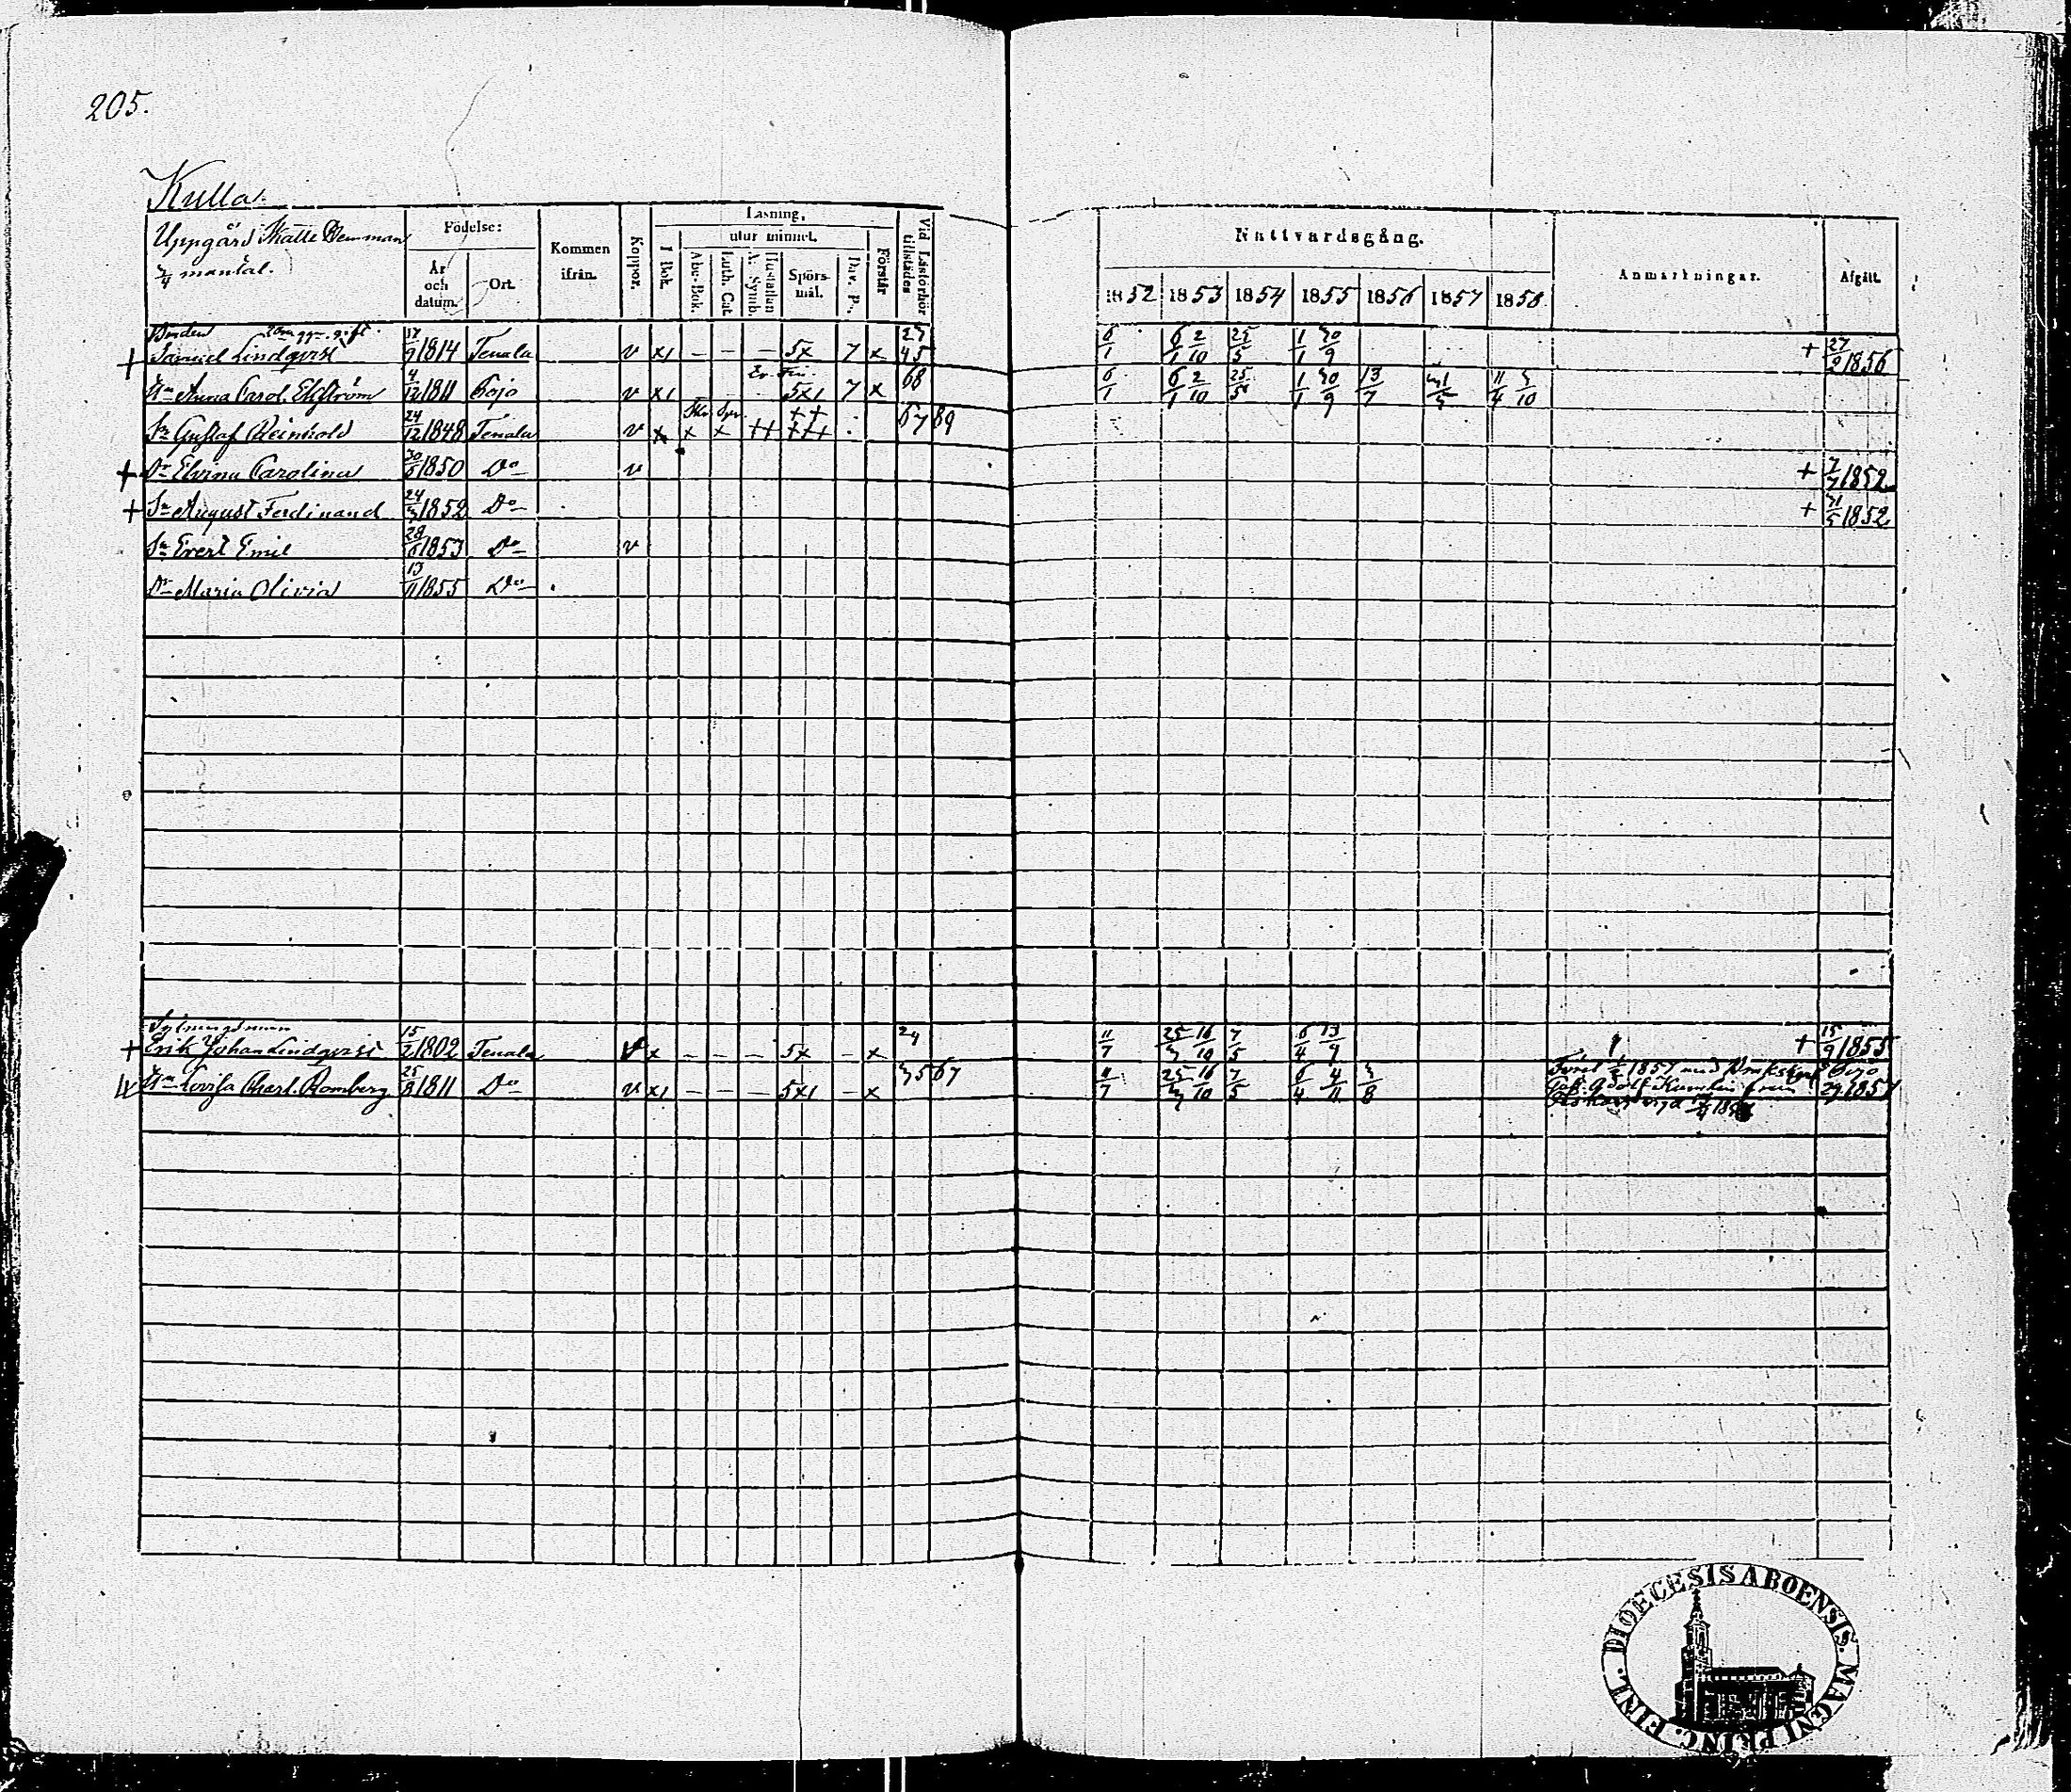 205.
Kulla.
Uppgård Skatte Hemman
3/4 mantal.
Födelse:
År och datum.
Ort.
Kommen ifrån.
Koppor.
Läsning,
I Bok.
utur minnet.
Abc-Bok.
Luth. Cat
Hustaflan A. Symb.
Spörs-mål.
Dav. P.
Förstår
Vid Läsförhör tillstädes
Nattvardsgång.
1852 1853 1854 1855 1856 1857 1858
Anmärkningar.
Afgått.
Bonden 2dra ggn gift.
+ Samuel Lindqvist 17/9 1814 Tenala v x1 – – – 5x 7 x 6/1 6/1 2/10 25/5 1/1 30/9 + 27/2 1856
Hu Anna Carol. Ekström 4/12 1811 Pojo v x1 5x1 7 x 68 6/1 6/1 2/10 25/5 1/1 30/9 13/7 11/4 3/10
Sn Gustaf Reinhold 24/12 1848 Tenala v x x x ++ +++ 67 89
+ Dr Elvina Carolina 30/6 1850 Do v + 7/7 1852
+ Sn August Ferdinand 24/3 1852 Do + 31/5 1852
Sn Evert Emil 28/6 1853 Do v
Dr Maria Olivia 13/11 1855 Do
Sytningsman
+ Erik Johan Lindqvist 15/2 1802 Tenala v x – – – 5x – x 24 11/7 25/3 16/10 7/5 6/4 13/9 + 15/9 1855
Hu Lovisa Charl. Romberg 25/8 1811 Do v x1 – – – 5x1 – x 3567 11/7 25/3 16/10 7/5 6/4 4/11 3/8 1857 med Pojo
Adolf Kumlin från 29. 1857
DIOECESIS ABOENSIS. MAGNI PRINC. FINL.